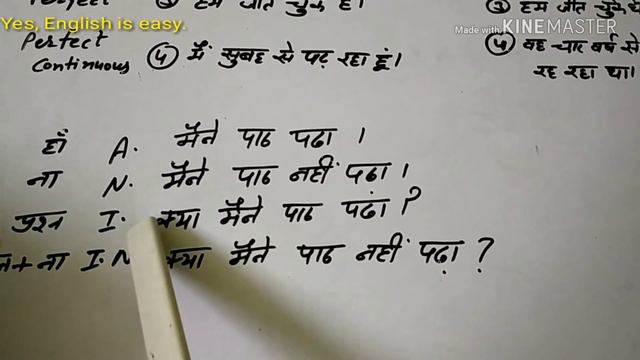 Yes, English is easy.
Made with KINEMASTER
Perfect ③ हम जीत चुके हैं। ③ हम जीत चुके थे
Perfect ④ मैं सुबह से पढ़ रहा हूं। ④ वह चार वर्ष से
Continuous रह रहा था।
हाँ A. मैंने पाठ पढा ।
ना N. मैंने पाठ नहीं पढा ।
प्रश्न I. क्या मैंने पाठ पढ़ा ?
+ ना I. N क्या मैंने पाठ नहीं पढ़ा ?